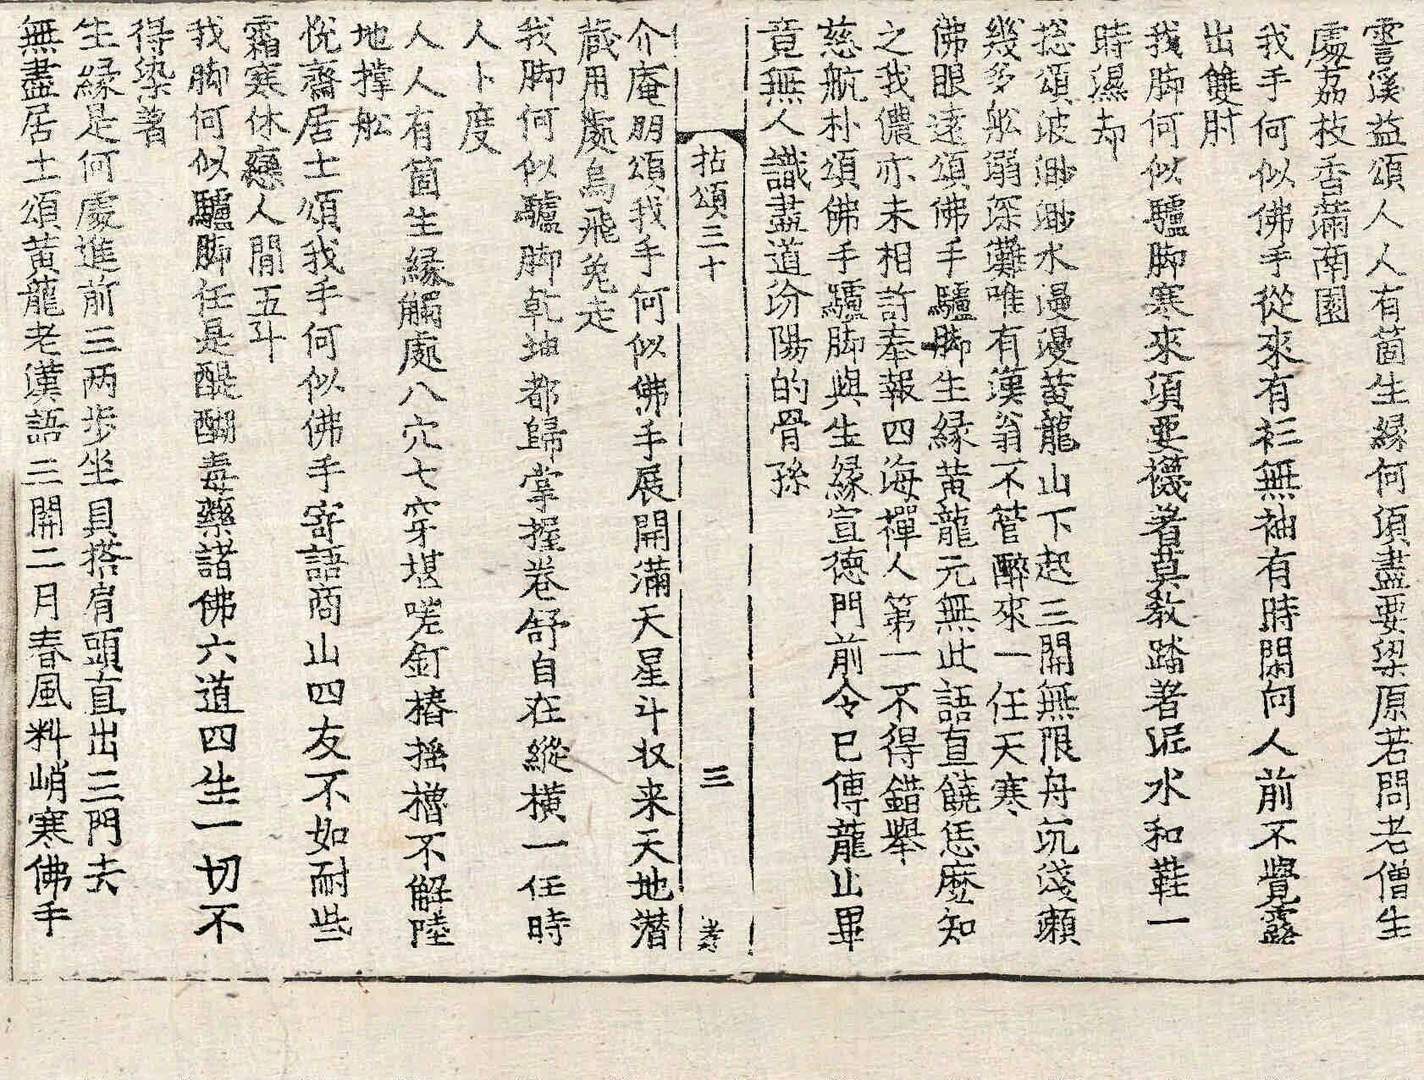 霅溪益頌人人有箇生緣何須盡要梁原若問老僧生
處荔枝香滿南園
我手何似佛手從來有衫無袖有時閑向人前不覺露
出雙肘
我脚何似驢脚寒來須要襪著莫敎踏著泥水和鞋一
時濕却
捴頌波渺渺水漫漫黃龍山下起三關無限舟沉淺瀨
幾多舩溺深灘唯有漢翁不管醉來一任天寒
佛眼遠頌佛手驢脚生緣黃龍元無此語直饒恁麽知
之我儂亦未相許奉報四海禪人第一不得錯舉
慈航朴頌佛手驢脚與生緣宣德門前令已傳龍山畢
竟無人識盡道汾陽的骨孫
拈頌三十 三 孝
介庵朋頌我手何似佛手展開滿天星斗収来天地潜
藏用處烏飛兔走
我脚何似驢脚乾坤都歸掌握卷舒自在縱橫一任時
人卜度
人人有箇生緣觸處八穴七穿堪嗟釘樁搖櫓不解陸
地撑舩
悅齋居士頌我手何似佛手寄語商山四友不如耐些
霜寒休戀人間五斗
我脚何似驢脚任是醍醐毒藥諸佛六道四生一切不
得染著
生緣是何處進前三两步坐具搭肩頭直出三門去
無盡居士頌黃龍老漢語三關二月春風料峭寒佛手